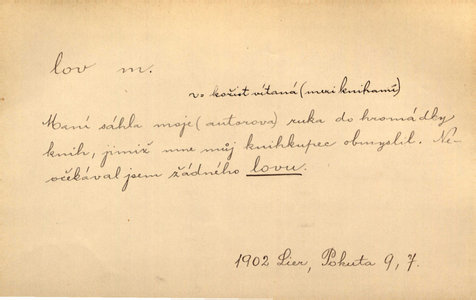 lov m.
v. kořist vítaná (mezi knihami)
Maní sáhla moje (autorova) ruka do hromádky
knih, jimiž mne můj knihkupec obmyslil. Ne-
očekával jsem žádného lovu.
1902 Lier, Pokuta 9, 7.